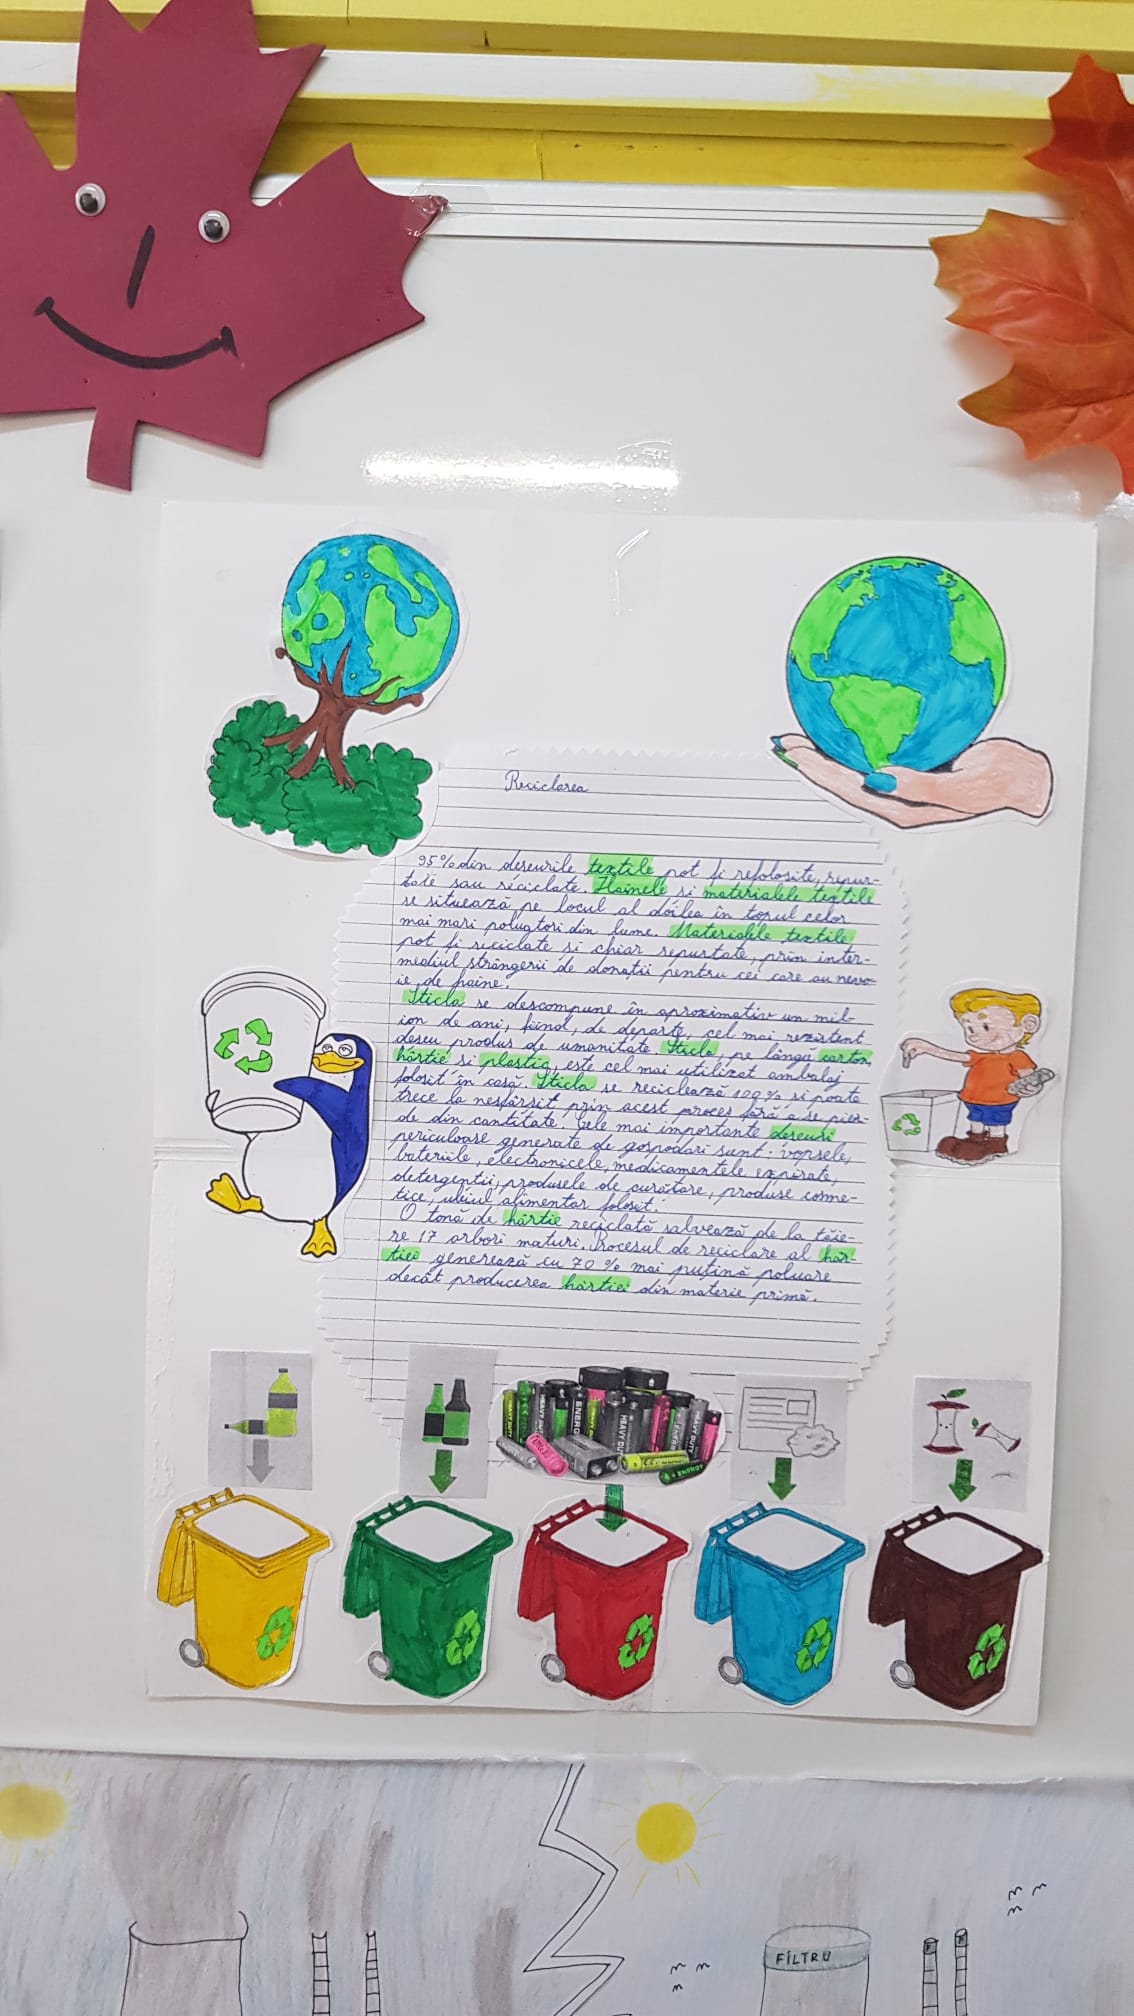 Reciclarea
95% din deseurile textile pot fi refolosite, repur-
tate sau reciclate. Hainele si materialele textile
se situează pe locul al doilea în topul celor
mai mari poluatori din lume. Materialele textile
pot fi reciclate si chiar repurtate, prin inter-
mediul strângerii de donații pentru cei care au nevo-
ie de haine.
Sticla se descompune în aproximativ un mil-
ion de ani, fiind, de departe, cel mai rezistent
deseu produs de umanitate. Sticla, pe lângă carton,
hârtie si plastic, este cel mai utilizat ambalaj
folosit în casă. Sticla se reciclează 100% si poate
trece la nesfârsit prin acest proces fără a se pier-
de din cantitate. Cele mai importante deseuri
periculoase generate de gospodari sunt: vopsele,
bateriile, electronicele, medicamentele expirate,
detergentii, produsele de curătare, produse cosme-
tice, uleiul alimentar folosit.
O tonă de hârtie reciclată salvează de la tăie-
re 17 arbori maturi. Procesul de reciclare al hâr-
tiei generează cu 70% mai puțină poluare
decât producerea hârtiei din materie primă.
HEAVY DUTY
ENERGY
HEAVY DUTY
HEAVY DUTY
ENERGY
FILTRU